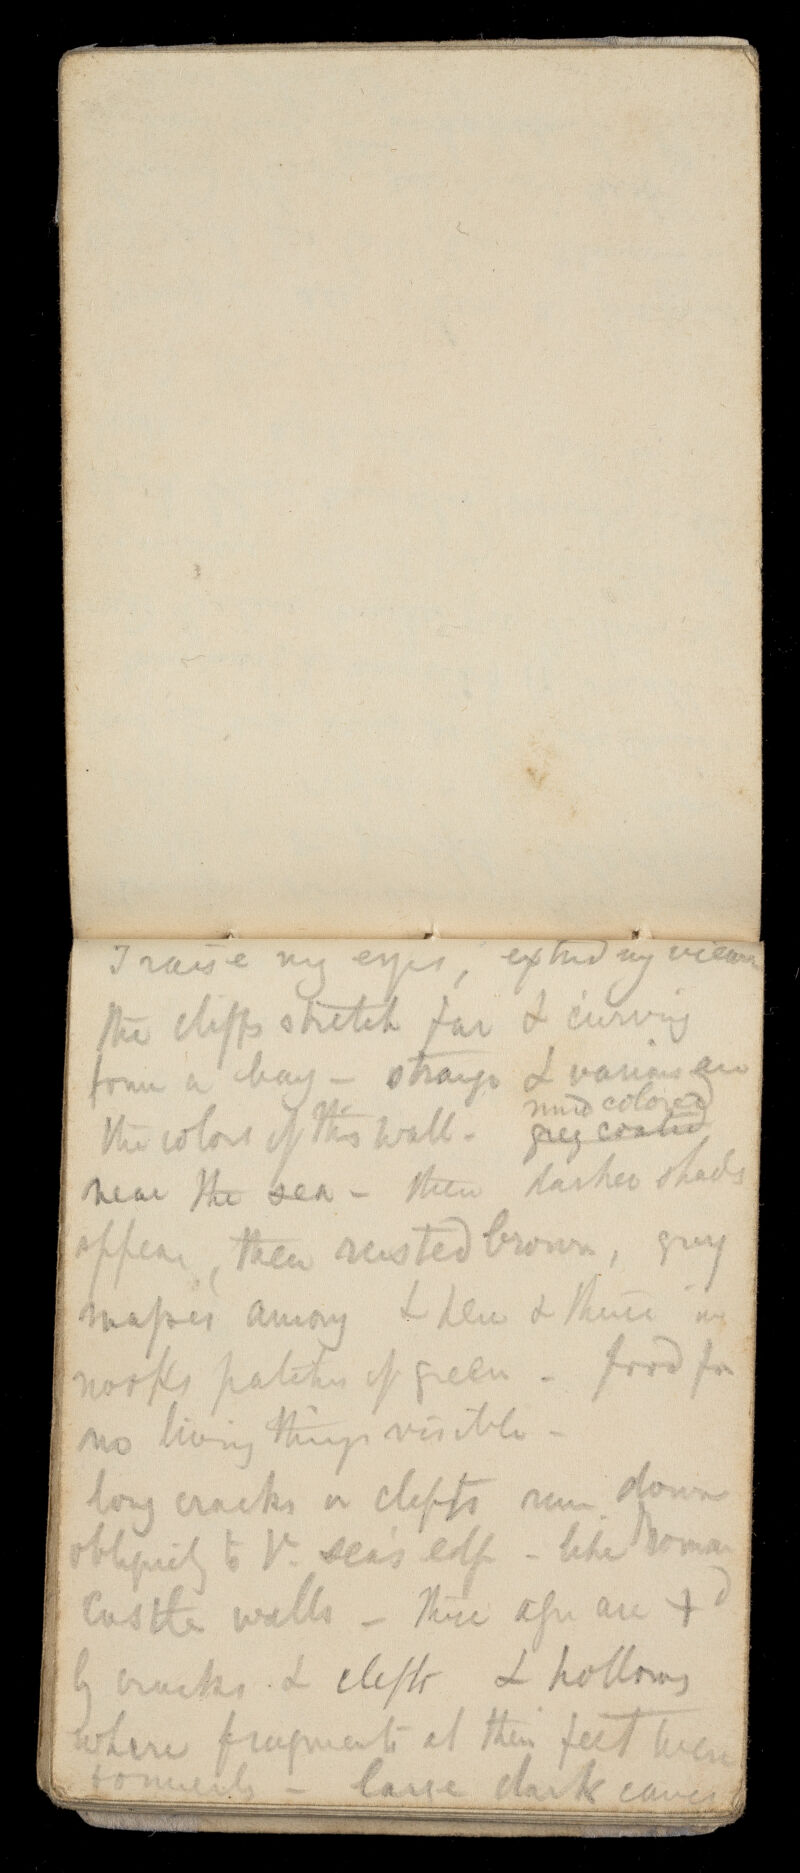 I raise my eyes, extend my view
the cliffs stretch far & curving
form a bay - strange & various are
the colors of this wall - mud colored
grey coated
near the sea - then darker shades
appear, then rusted brown, grey
masses among & here & there in
nooks patches of green - food for
no living things visible -
long cracks or clefts run down
obliquely to the sea's edge - like Roman
Castle walls - these again are +d
by cracks & clefts & hollows
where fragments at their feet were
formerly - large dark caves